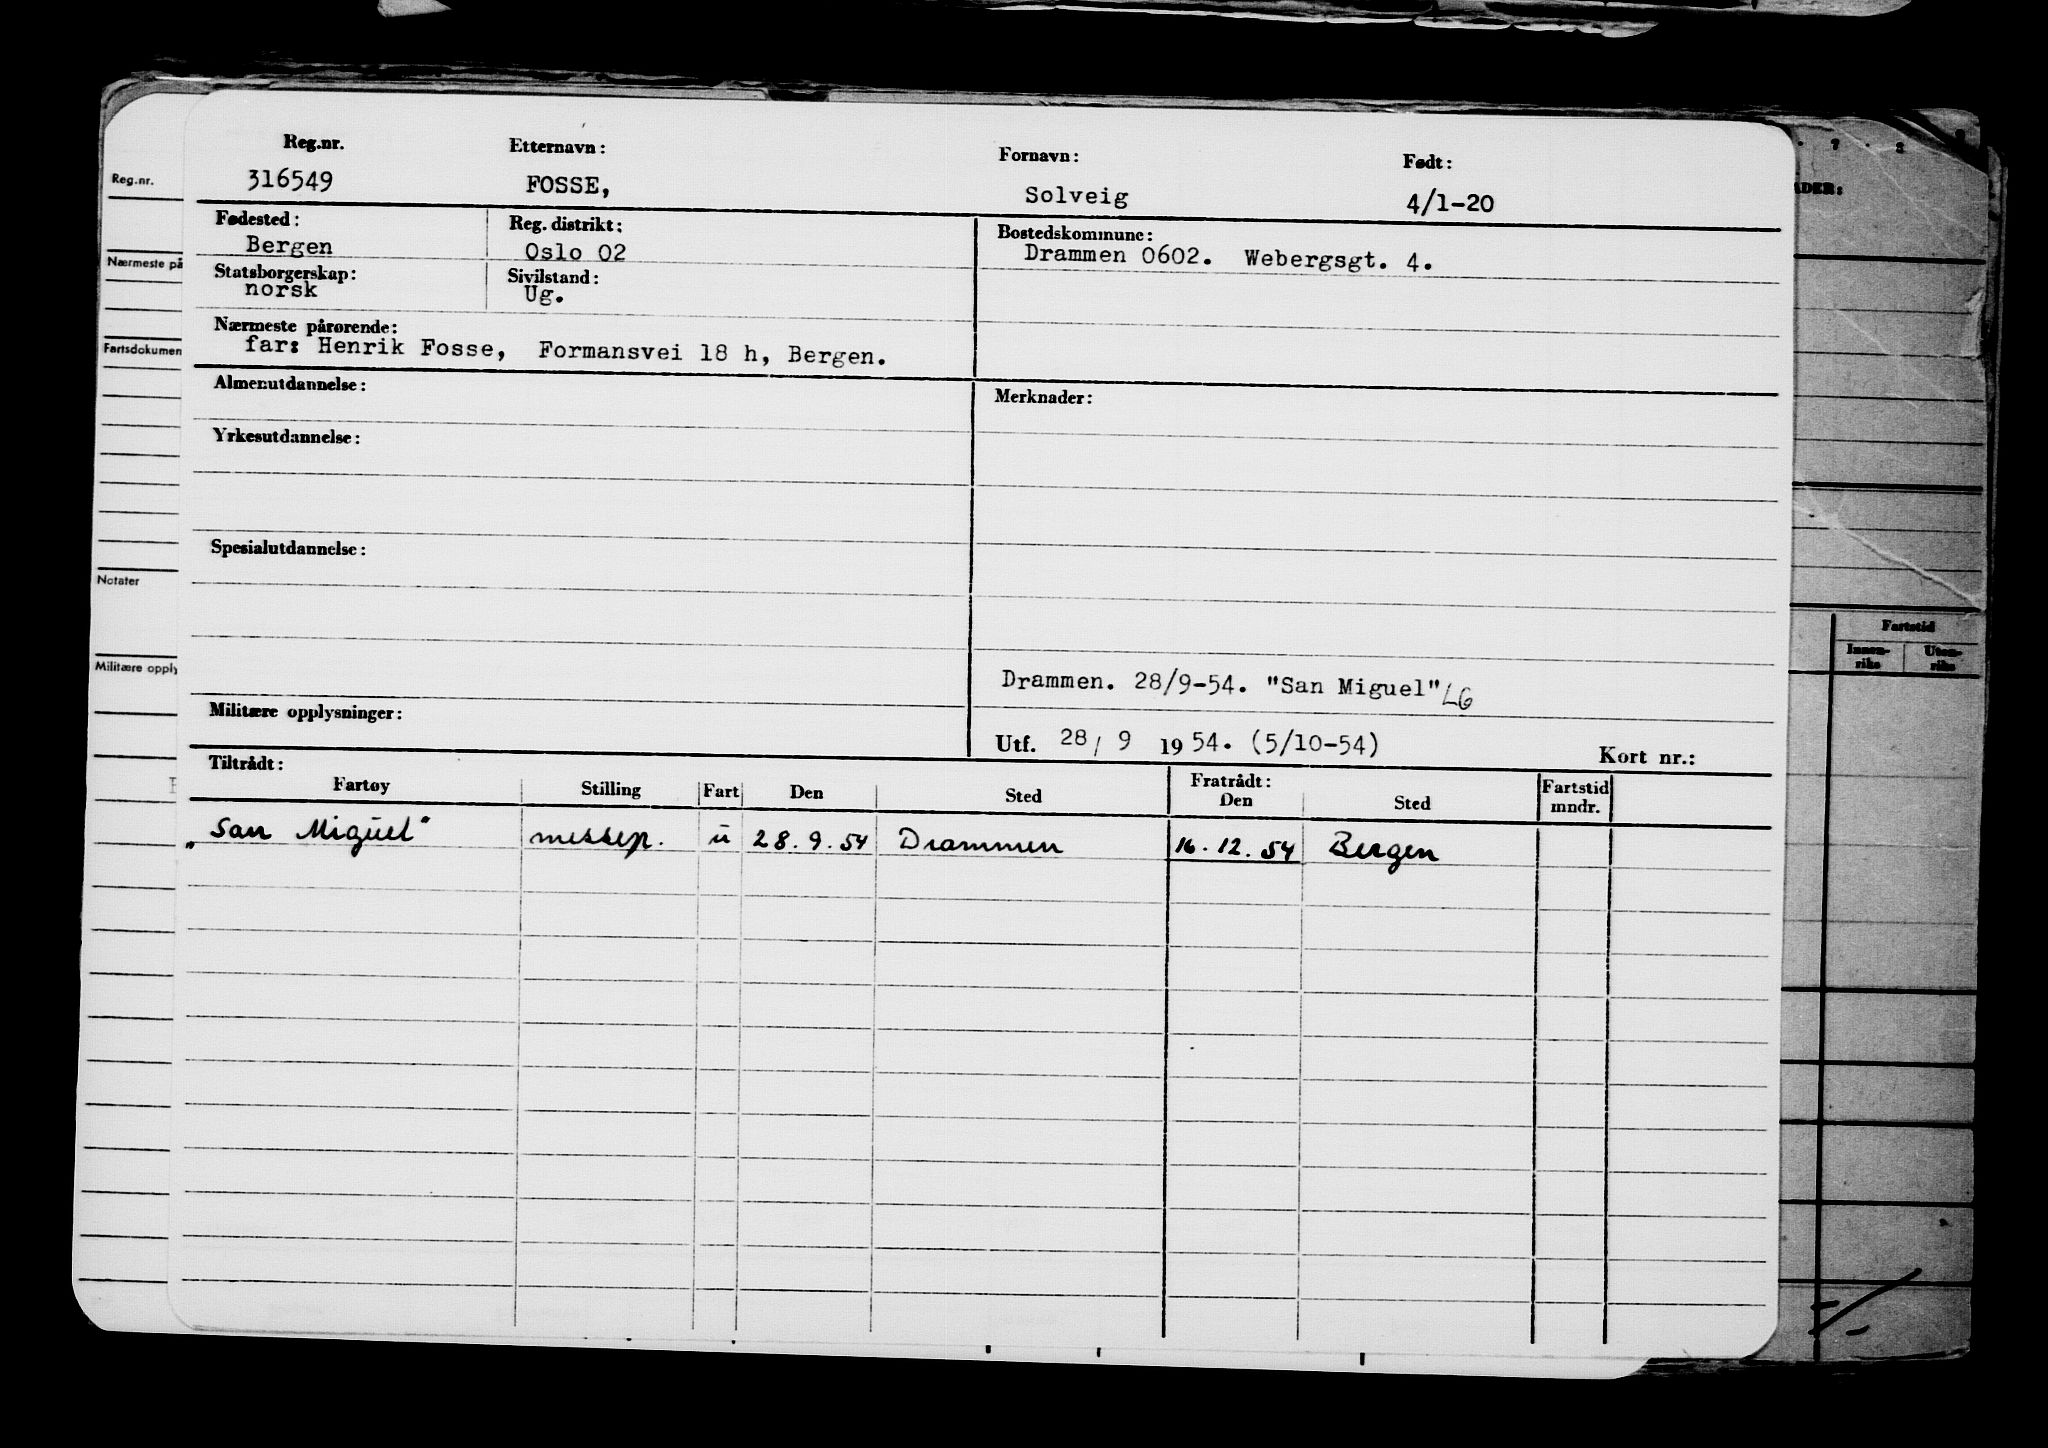 Reg.nr. Etternavn: Fornavn: Født:
316549 FOSSE, Solveig 4/1-20
Fødested: Reg. distrikt: Bostedskommune:
Bergen Oslo 02 Drammen 0602. Webergsgt. 4.
Statsborgerskap: Sivilstand:
norsk Ug.
Nærmeste pårørende:
far: Henrik Fosse, Formansvei 18 h, Bergen.
Almenutdannelse: Merknader:
Yrkesutdannelse:
Spesialutdannelse:
Drammen. 28/9-54. "San Miguel" LG
Militære opplysninger:
Utf. 28/ 9 1954. (5/10-54) Kort nr.:
Tiltrådt: Fratrådt:
Fartøy Stilling Fart Den Sted Den Sted Fartstid mndr.
„San Miguel" messep. u 28.9.54 Drammen 16.12.54 Bergen
Reg.nr.
Nærmeste på
Fartsdokumen
Notater
Militære opply
ADER:
Fartstid
Innen-
riks
Uten-
riks